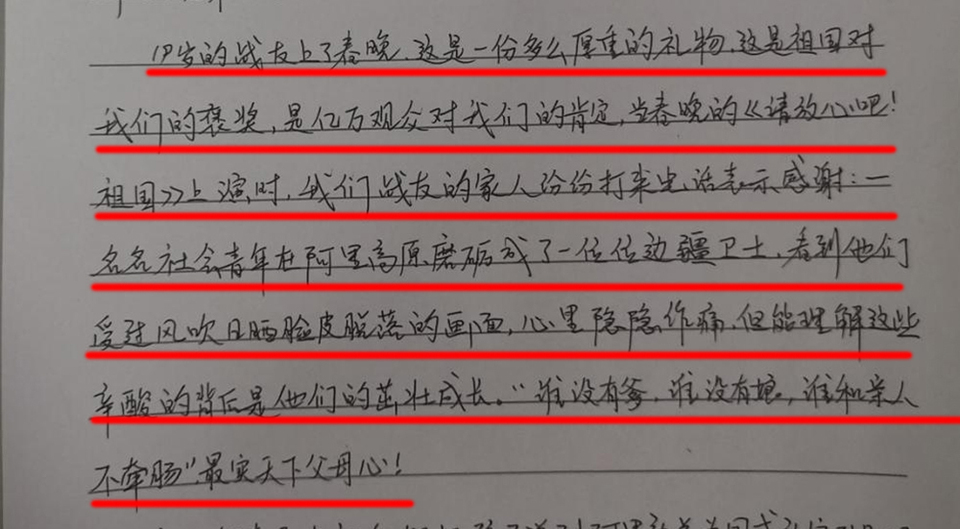 19岁的战友上了春晚,这是一份多么厚重的礼物,这是祖国对
我们的褒奖,是亿万观众对我们的肯定,当春晚的《请放心吧!
祖国》上演时,我们战友的家人纷纷打来电话表示感谢:一
名名社会青年在阿里高原磨砺成了一位位边疆卫士,看到他们
受过风吹日晒脸皮脱落的画面,心里隐隐作痛,但能理解这些
辛酸的背后是他们的茁壮成长。“谁没有爹,谁没有娘,谁和亲人
不牵肠”最实天下父母心!